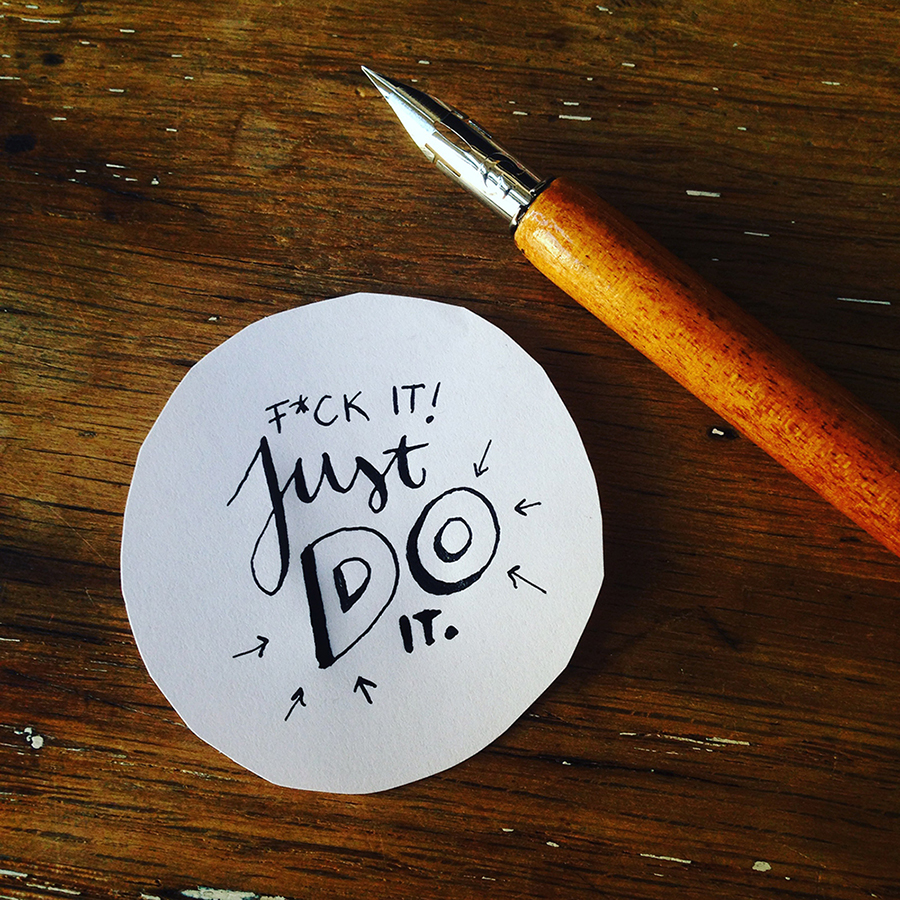 F*CK IT!
Just
DO
IT.